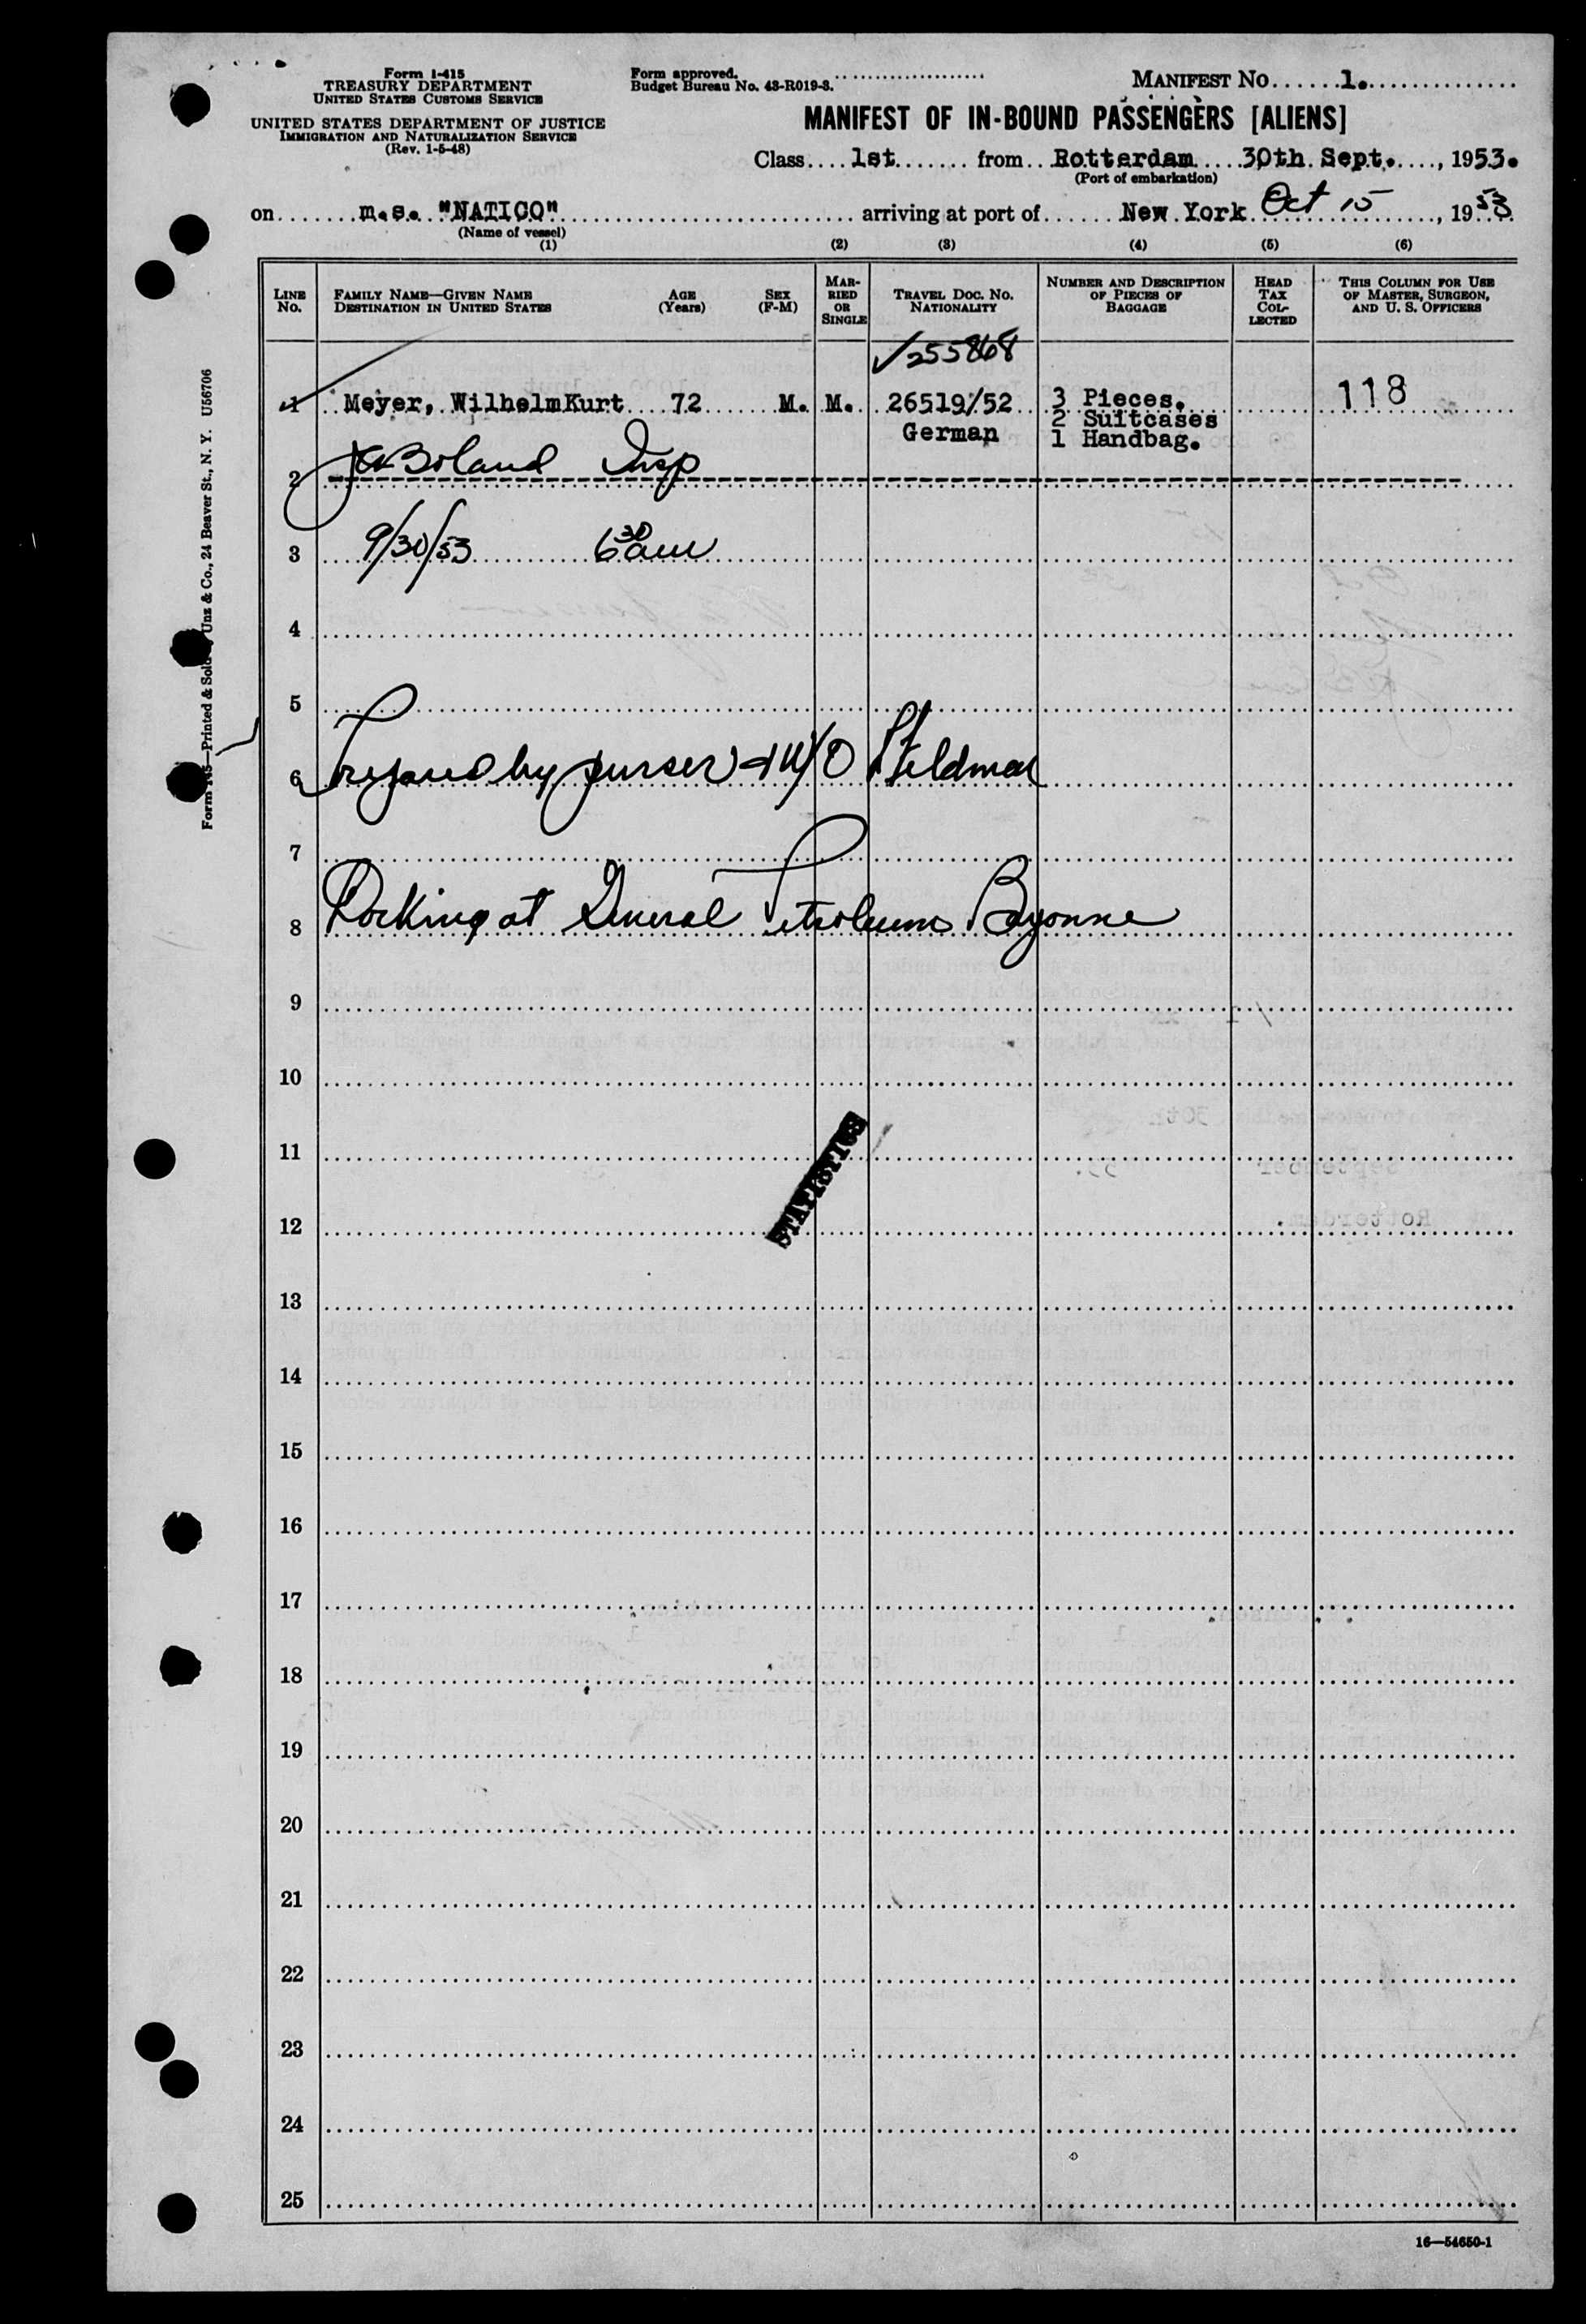 Form I-415
TREASURY DEPARTMENT
UNITED STATES CUSTOMS SERVICE
UNITED STATES DEPARTMENT OF JUSTICE
IMMIGRATION AND NATURALIZATION SERVICE
(Rev. 1-5-48)
Form approved.
Budget Bureau No. 43-R019-3.
MANIFEST NO......1...............
MANIFEST OF IN-BOUND PASSENGERS [ALIENS]
Class....1st.......from...Rotterdam....30th Sept....., 1953.
(Port of embarkation)
on.......m.s. "NATICO"........................arriving at port of......New York Oct 15........, 1953
(Name of vessel)
(1) (2) (3) (4) (5) (6)
LINE NO. FAMILY NAME—GIVEN NAME DESTINATION IN UNITED STATES AGE (Years) SEX (F-M) MARRIED OR SINGLE TRAVEL DOC. NO. NATIONALITY NUMBER AND DESCRIPTION OF PIECES OF BAGGAGE HEAD TAX COLLECTED THIS COLUMN FOR USE OF MASTER, SURGEON, AND U. S. OFFICERS
✓255868
1 Meyer, WilhelmKurt 72 M. M. 26519/52 3 Pieces. 118
2 Suitcases
German 1 Handbag.
Boland Insp
2
3 9/30/53 6 30 am
4
5
6 by purser + W/O Feldman
7
8 Docking at General Petroleum Bayonne
9
10
11
STATISTICS
12
13
14
15
16
17
18
19
20
21
22
23
24
25
16—54650-1
Unz & Co., 24 Beaver St., N. Y. U56706